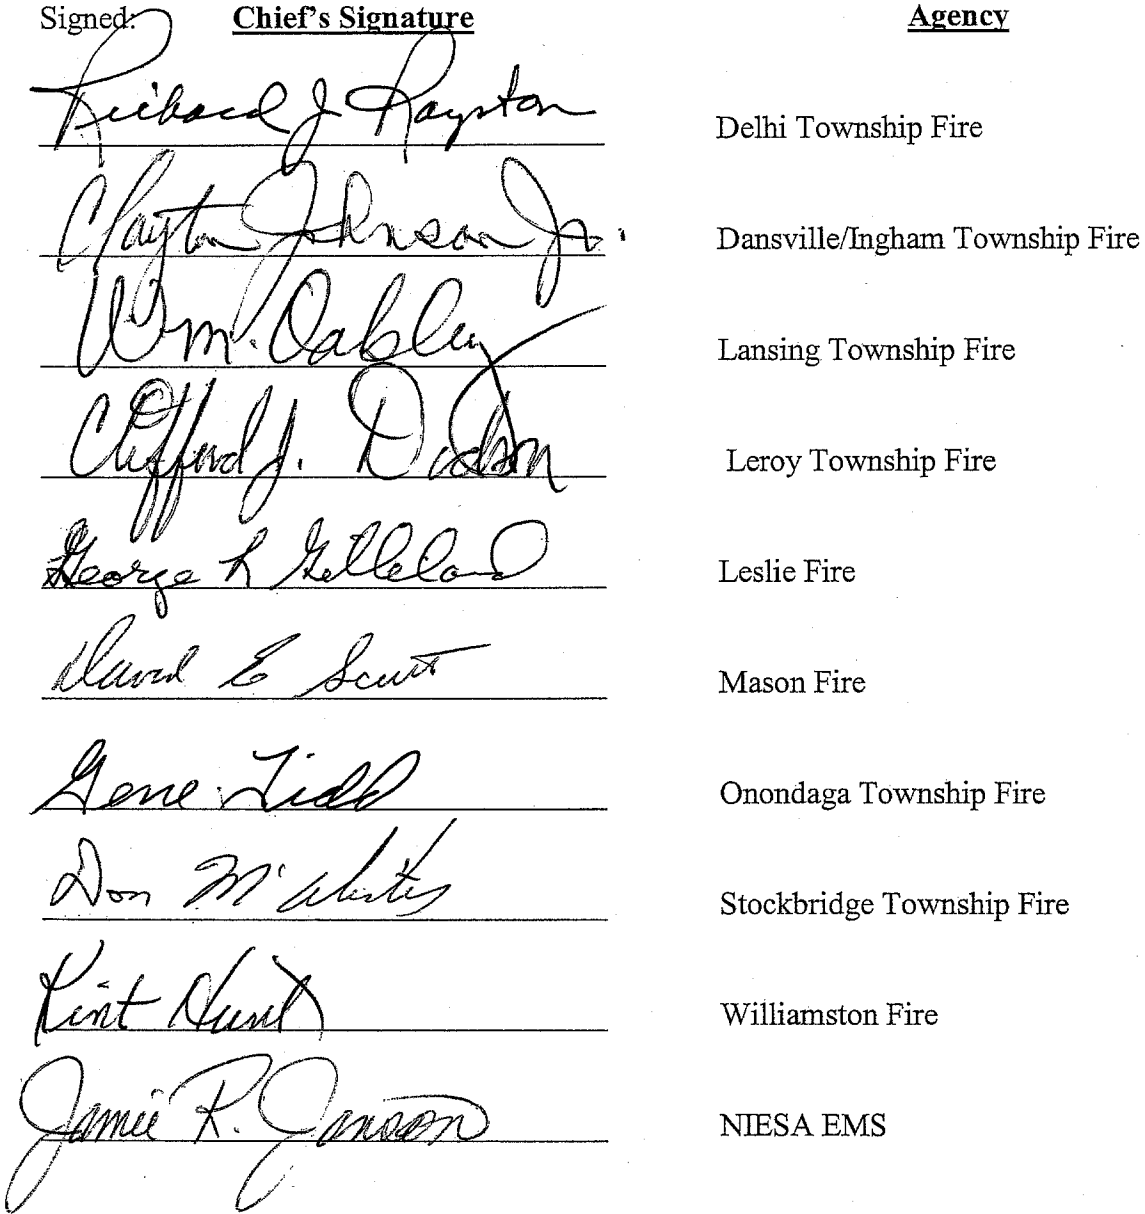 Signed: Chief's Signature Agency
Richard J Royston Delhi Township Fire
Clayton Johnson Jr. Dansville/Ingham Township Fire
Wm. Oakley Lansing Township Fire
Clifford J. Dodson Leroy Township Fire
George L Gilleland Leslie Fire
David E Scutt Mason Fire
Gene Tidd Onondaga Township Fire
Don Stockbridge Township Fire
Kent Hunt Williamston Fire
Jamie R. Janson NIESA EMS